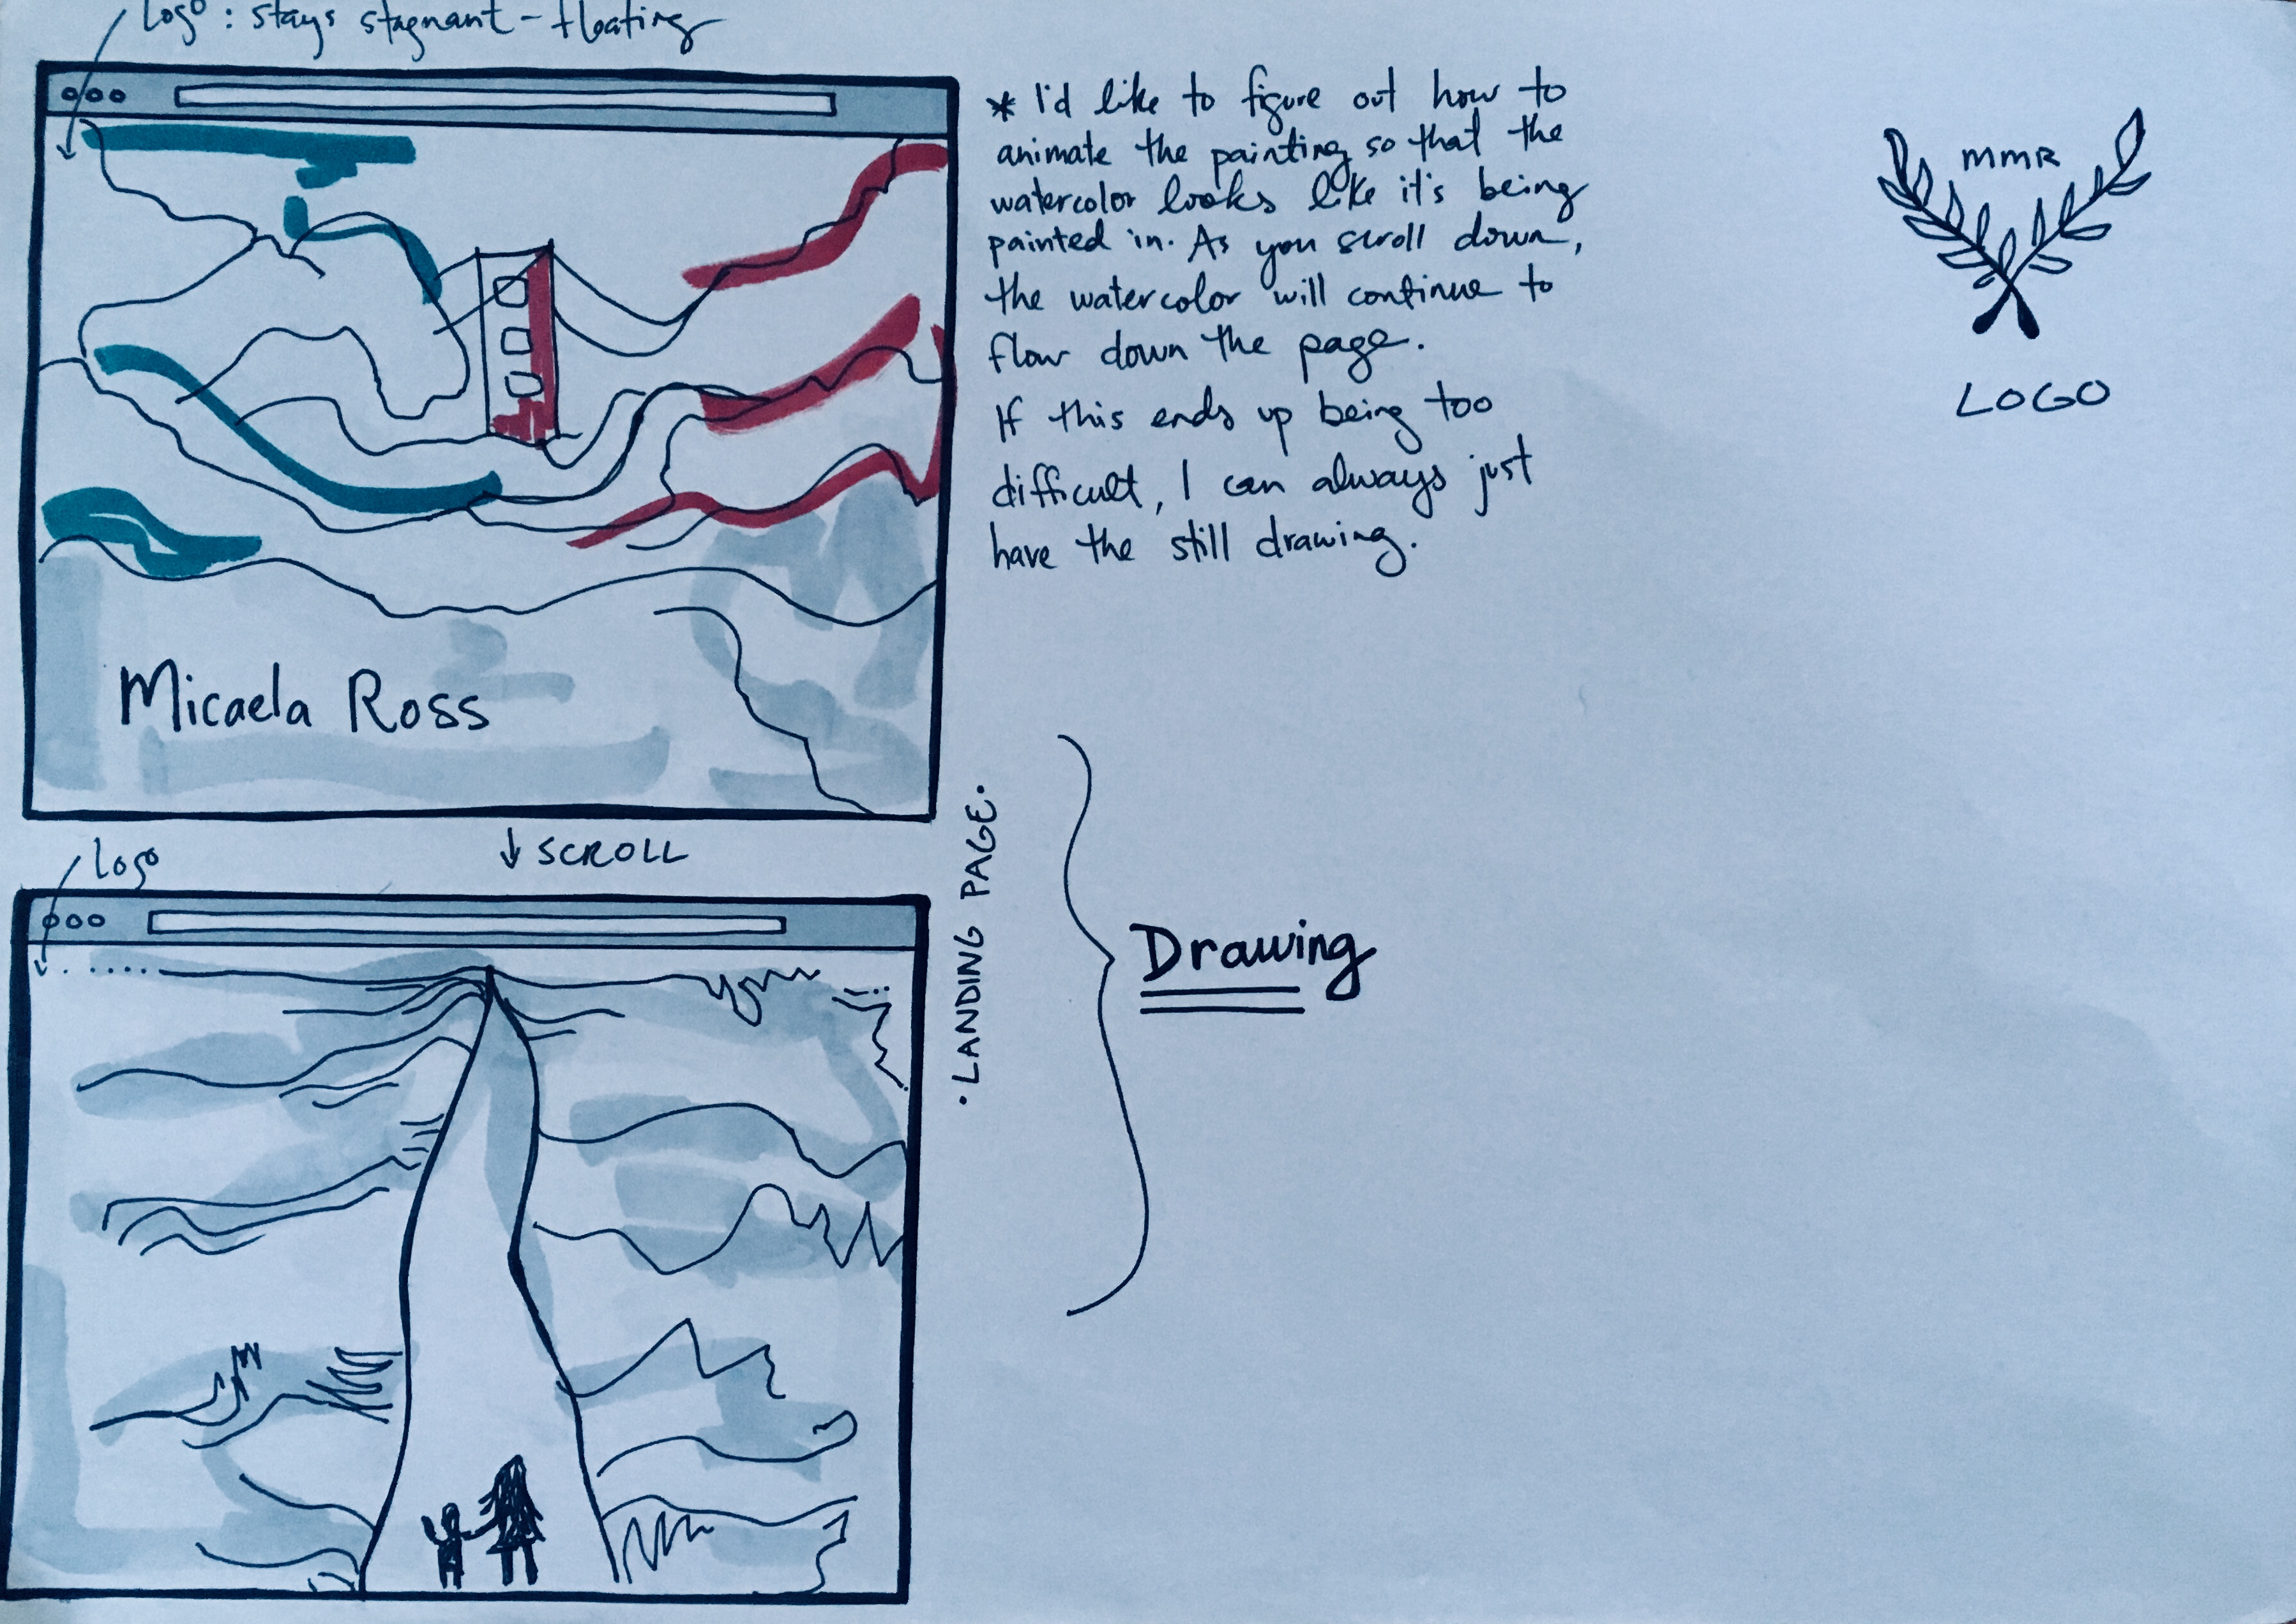 Logo : stays stagnant - floating
* I'd like to figure out how to
animate the painting so that the
watercolor looks like it's being
painted in. As you scroll down,
the watercolor will continue to
flow down the page.
If this ends up being too
difficult, I can always just
have the still drawing.
MMR
LOGO
Micaela Ross
↓ SCROLL
Logo
• LANDING PAGE •
Drawing